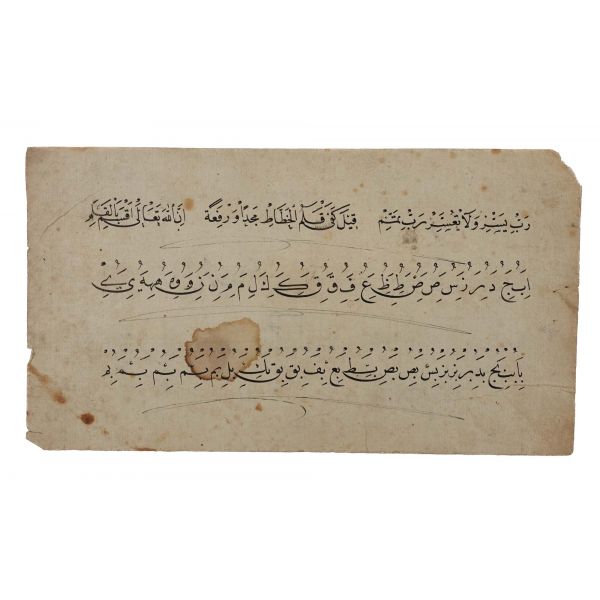 رَبِّ يَسِّرْ وَلَا تُعَسِّرْ رَبِّ تَمِّمْ قِيلَ كَفَى قَلَمَ الْخَطَّاطِ مَجْدًا وَرِفْعَةً اِنَّ اللهَ تَعَالَى اَقْسَمَ بِالْقَلَمِ
ا ب ج د ر ز س ص ض ط ظ ع ف ق ق ك ك ل م م ن ن و و ه هه ى ے
با بب بج بد بر بز بس بص بض بط بع بف بق بو بك بل بم بم بم بم